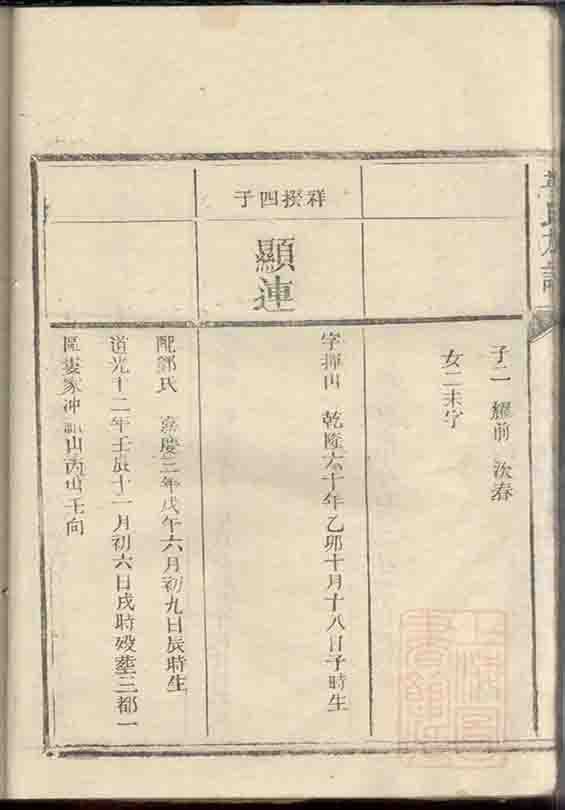 氏族譜
子二 耀前 次春
女二未字
祥揆四子
顯連
字揮山 乾隆六十年乙卯十月十八日子時生
配鄧氏 嘉慶三年戊午六月初九日辰時生
道光十二年壬辰十一月初六日戌時歿塟三都一
區婁家冲 山丙山壬向